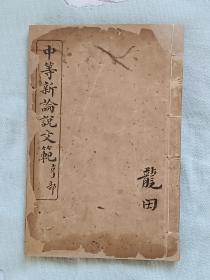 中等新論說文範 亨部
龍田